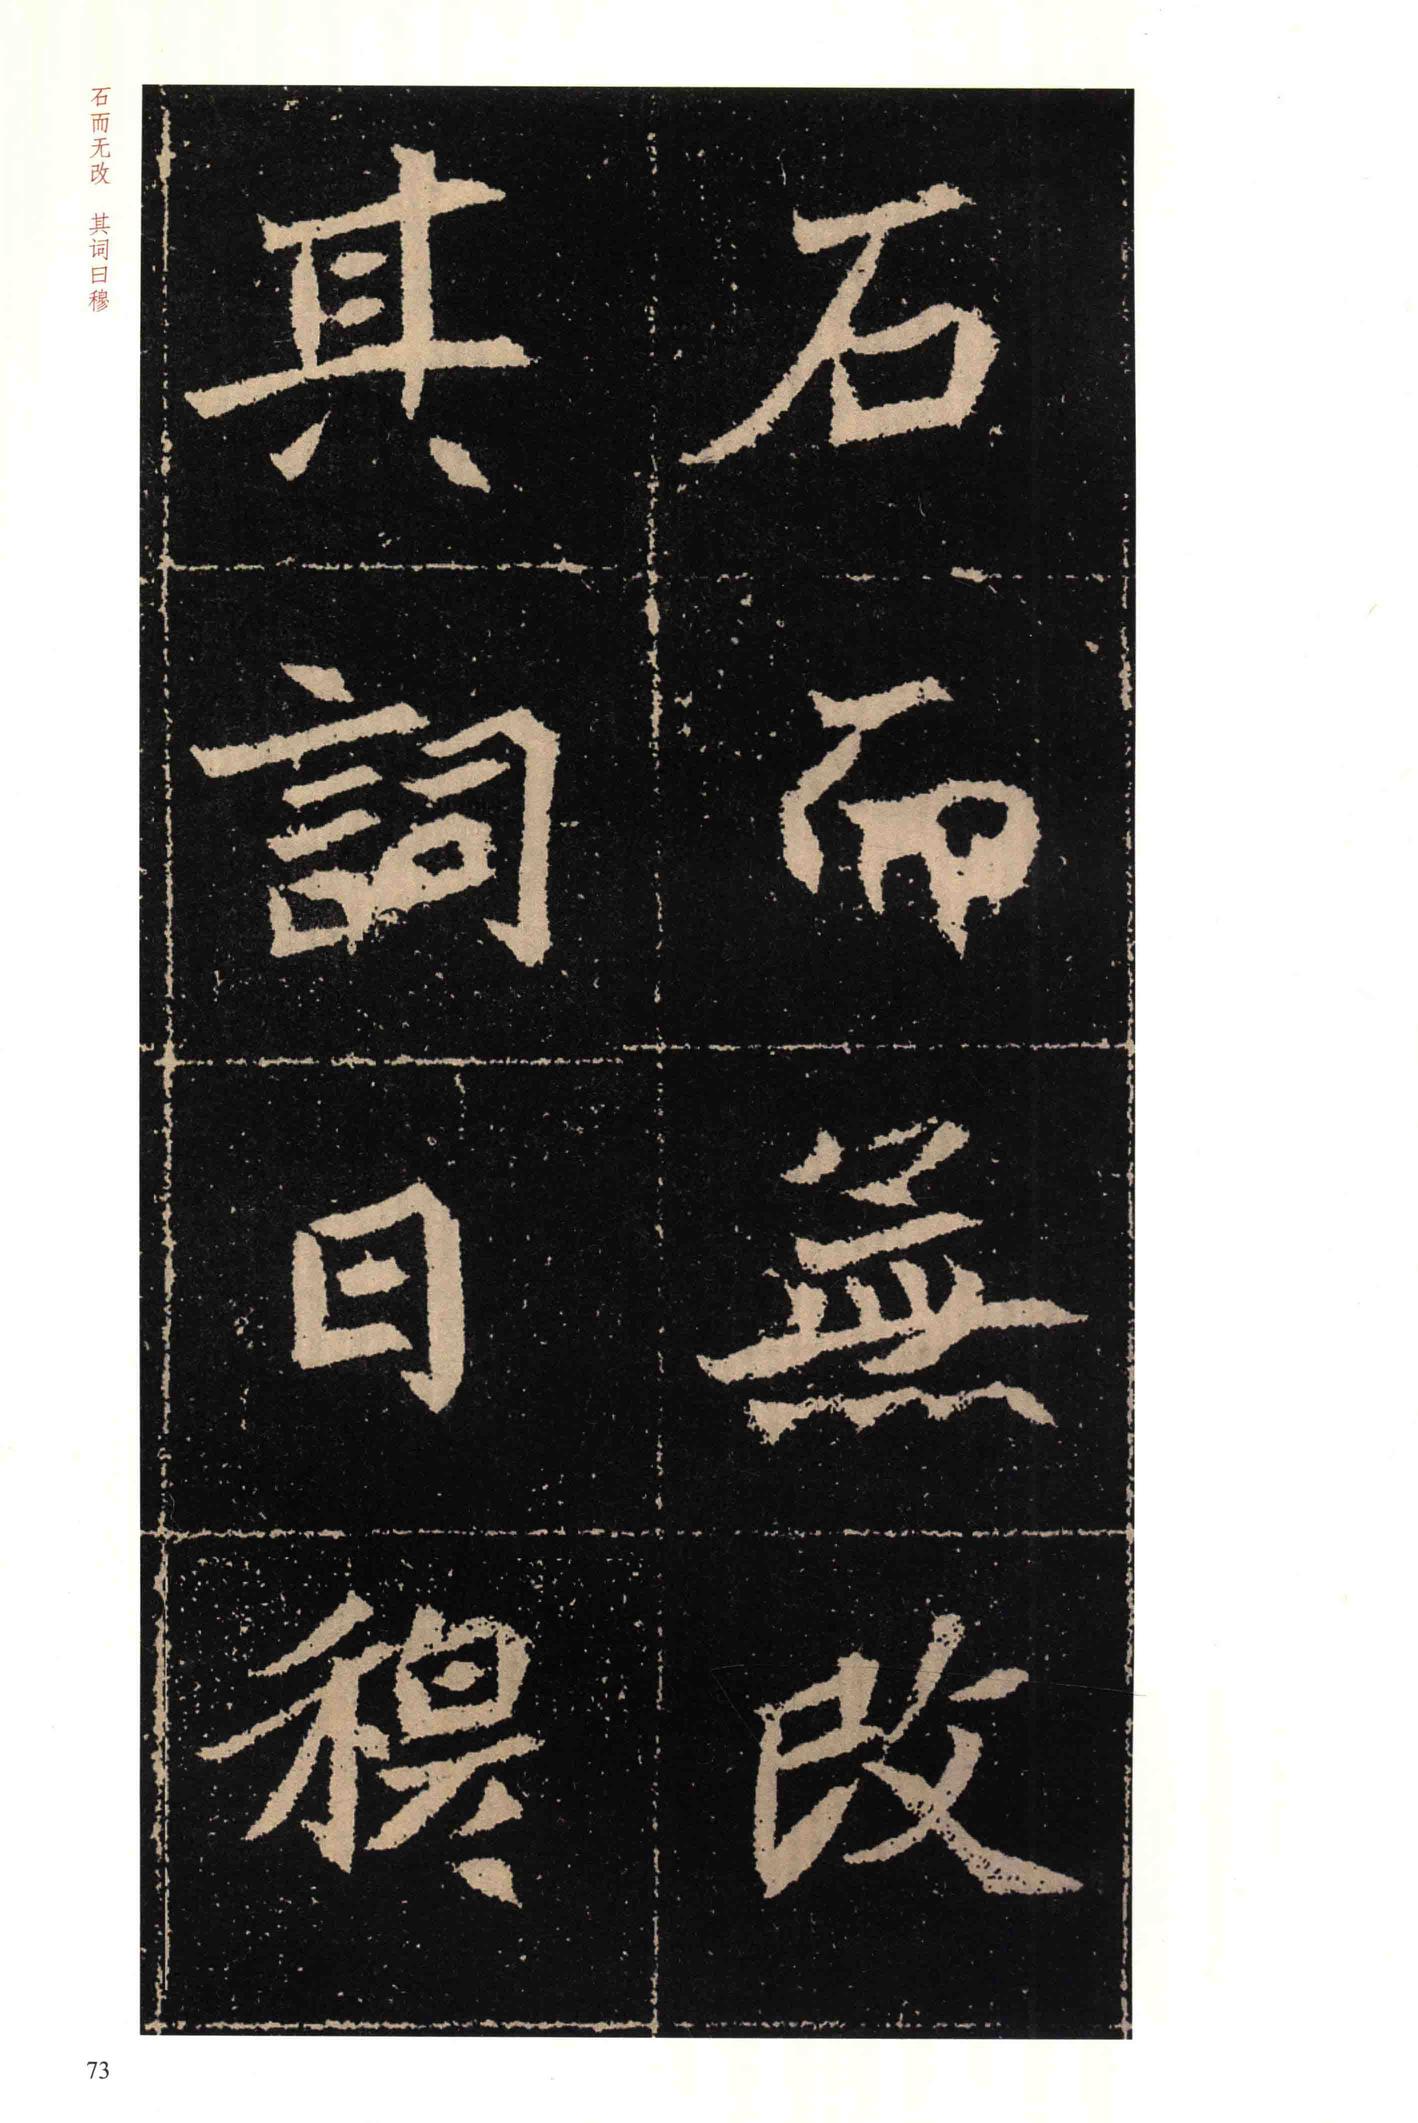 石而無改
其詞曰穆
石而无改 其词曰穆
73